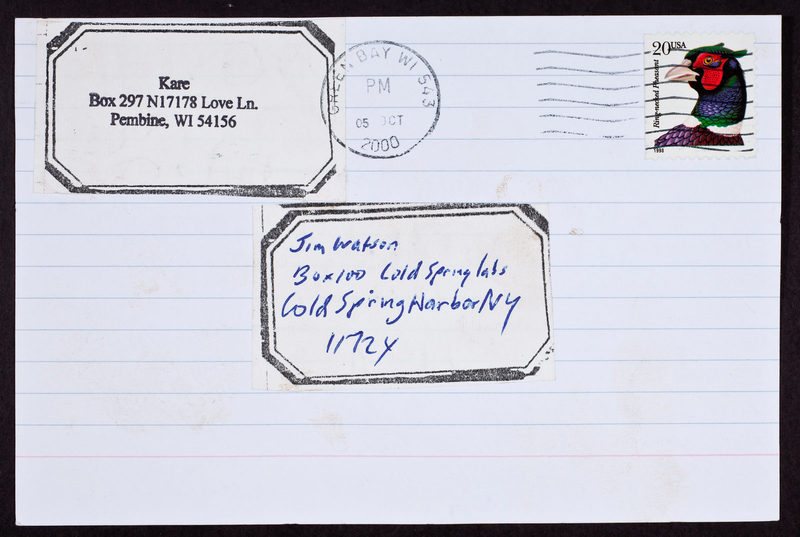 Kare
Box 297 N17178 Love Ln.
Pembine, WI 54156
GREEN BAY WI 543
PM
05 OCT
2000
20USA
Ring-necked Pheasant
1998
Jim Watson
Box100 Cold Spring labs
Cold Spring Harbor NY
11724